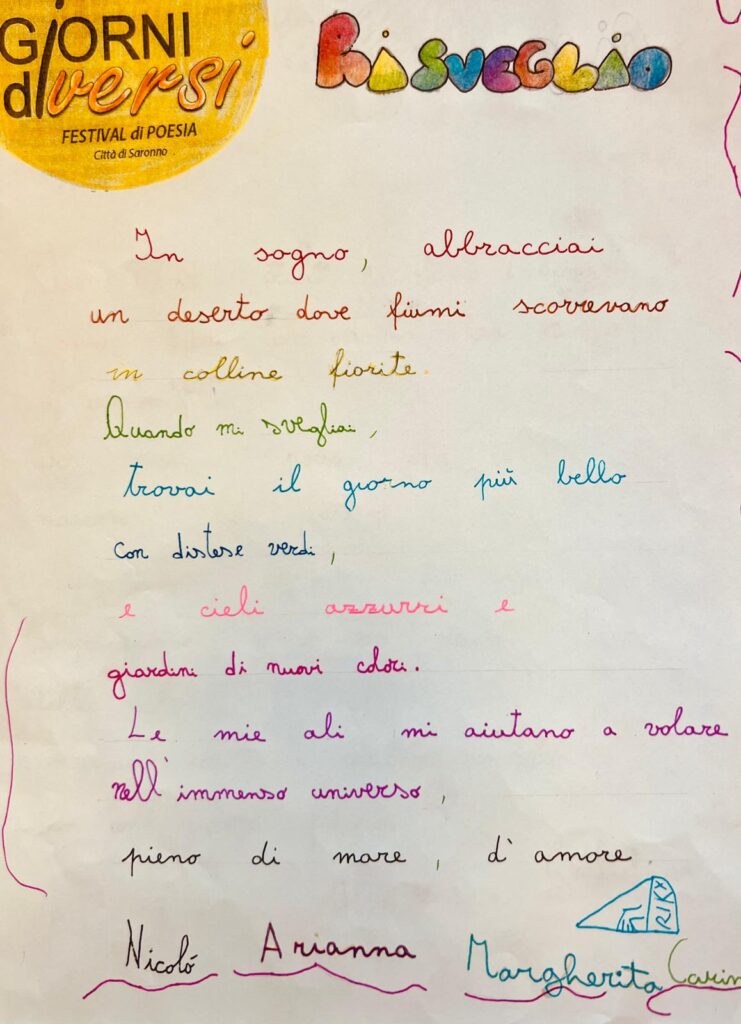 GIORNI
diversi
FESTIVAL di POESIA
Città di Saronno
RiSVEGLiO
In sogno, abbracciai
un deserto dove fiumi scorrevano
in colline fiorite.
Quando mi svegliai,
trovai il giorno più bello
con distese verdi,
e cieli azzurri e
giardini di nuovi colori.
Le mie ali mi aiutano a volare
nell'immenso universo,
pieno di mare, d'amore.
Nicoló Arianna Margherita